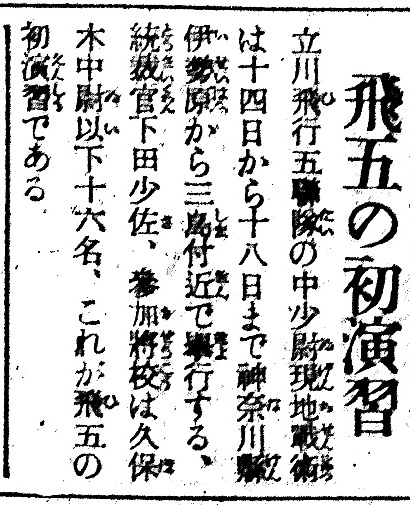 飛五の初演習
立川飛行五聯隊の中少尉現地戰術
は十四日から十八日まで神奈川縣
伊勢原から三島付近で擧行する、
統裁官下田少佐、參加將校は久保
木中尉以下十六名、これが飛五の
初演習である